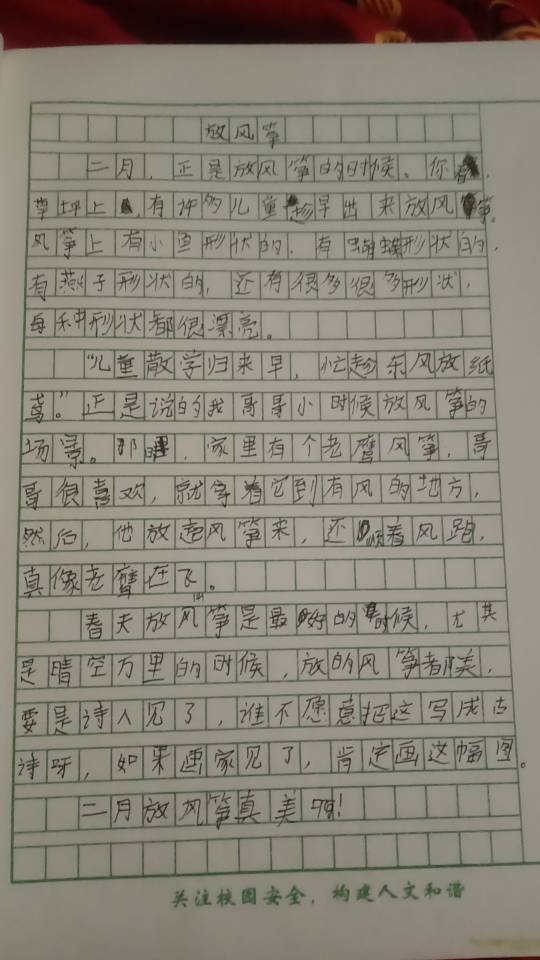 放风筝
二月，正是放风筝的时候。你看，
草坪上，有许多儿童趁早出来放风筝。
风筝上有小鱼形状的，有蝴蝶形状的，
有燕子形状的，还有很多很多形状，
每种形状都很漂亮。
“儿童散学归来早，忙趁东风放纸
鸢。”正是说的我哥哥小时候放风筝的
场景。那时，家里有个老鹰风筝，哥
哥很喜欢，就拿着它到有风的地方，
然后，他放起风筝来，还顺着风跑，
真像老鹰在飞。
春天放风筝是最好的时候，尤其
是晴空万里的时候，放的风筝都美，
要是诗人见了，谁不愿意把这写成古
诗呀，如果画家见了，肯定画这幅图。
二月放风筝真美啊！
关注校园安全，构建人文和谐